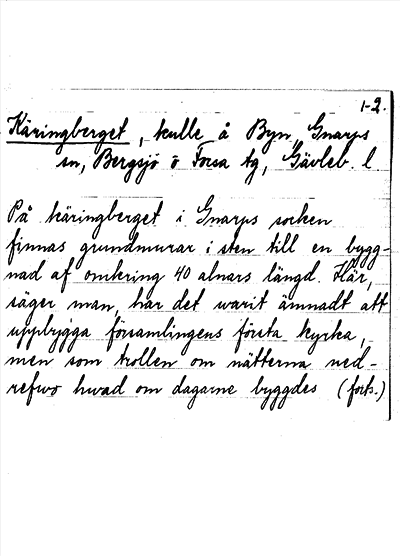 1-2.
Käringberget, kulle å Byn, Gnarps
sn, Bergsjö o Forsa tg, Gävleb. l
På käringberget i Gnarps socken
finnas grundmurar i sten till en bygg-
nad af omkring 40 alnars längd. Här,
säger man, har det warit ämnadt att
uppbygga församlingens första kyrka,
men som trollen om nätterna ned-
refwo hwad om dagarne byggdes (forts.)